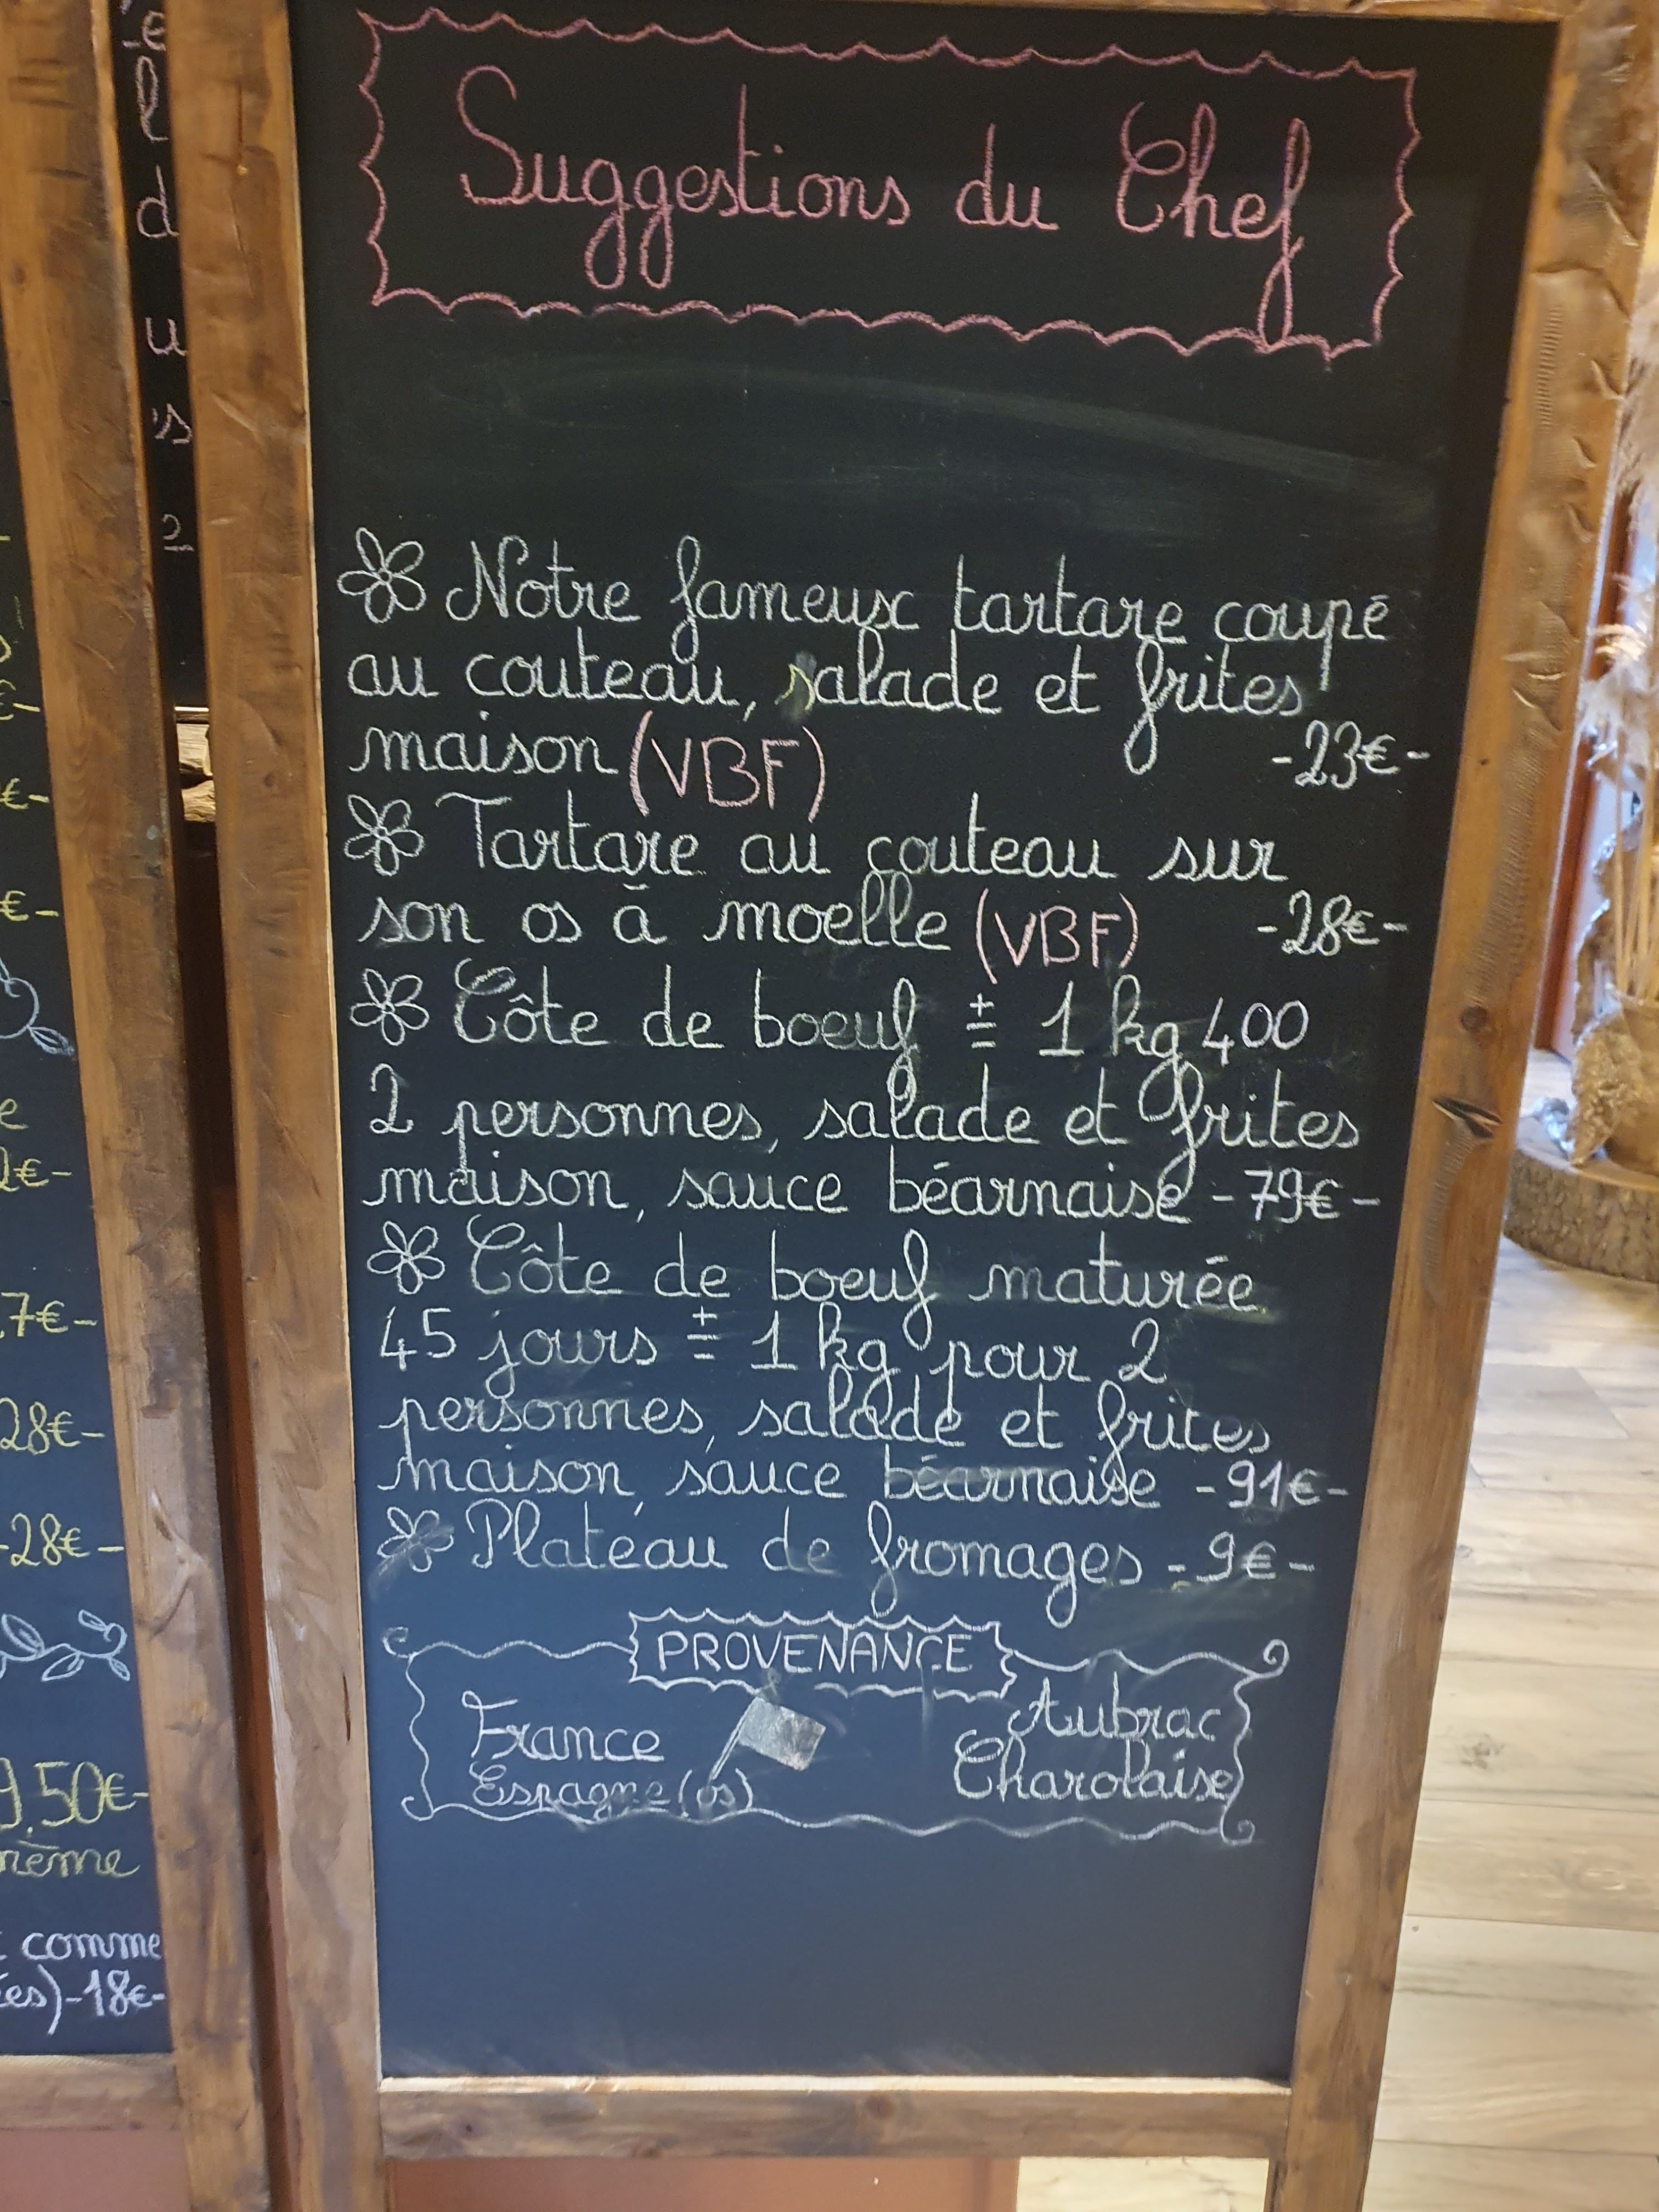 Suggestions du Chef
Notre fameux tartare coupé
au couteau, salade et frites
maison (VBF) -23€-
Tartare au couteau sur
son os à moelle (VBF) -28€-
Côte de boeuf ± 1 kg 400
2 personnes, salade et frites
maison, sauce béarnaise -79€-
Côte de boeuf maturée
45 jours ± 1 kg pour 2
personnes, salade et frites
maison, sauce béarnaise -91€-
Plateau de fromages -9€-
PROVENANCE
France Aubrac
Espagne (os) Charolaise
7€-
28€-
-28€-
9,50€-
comme
-18€-